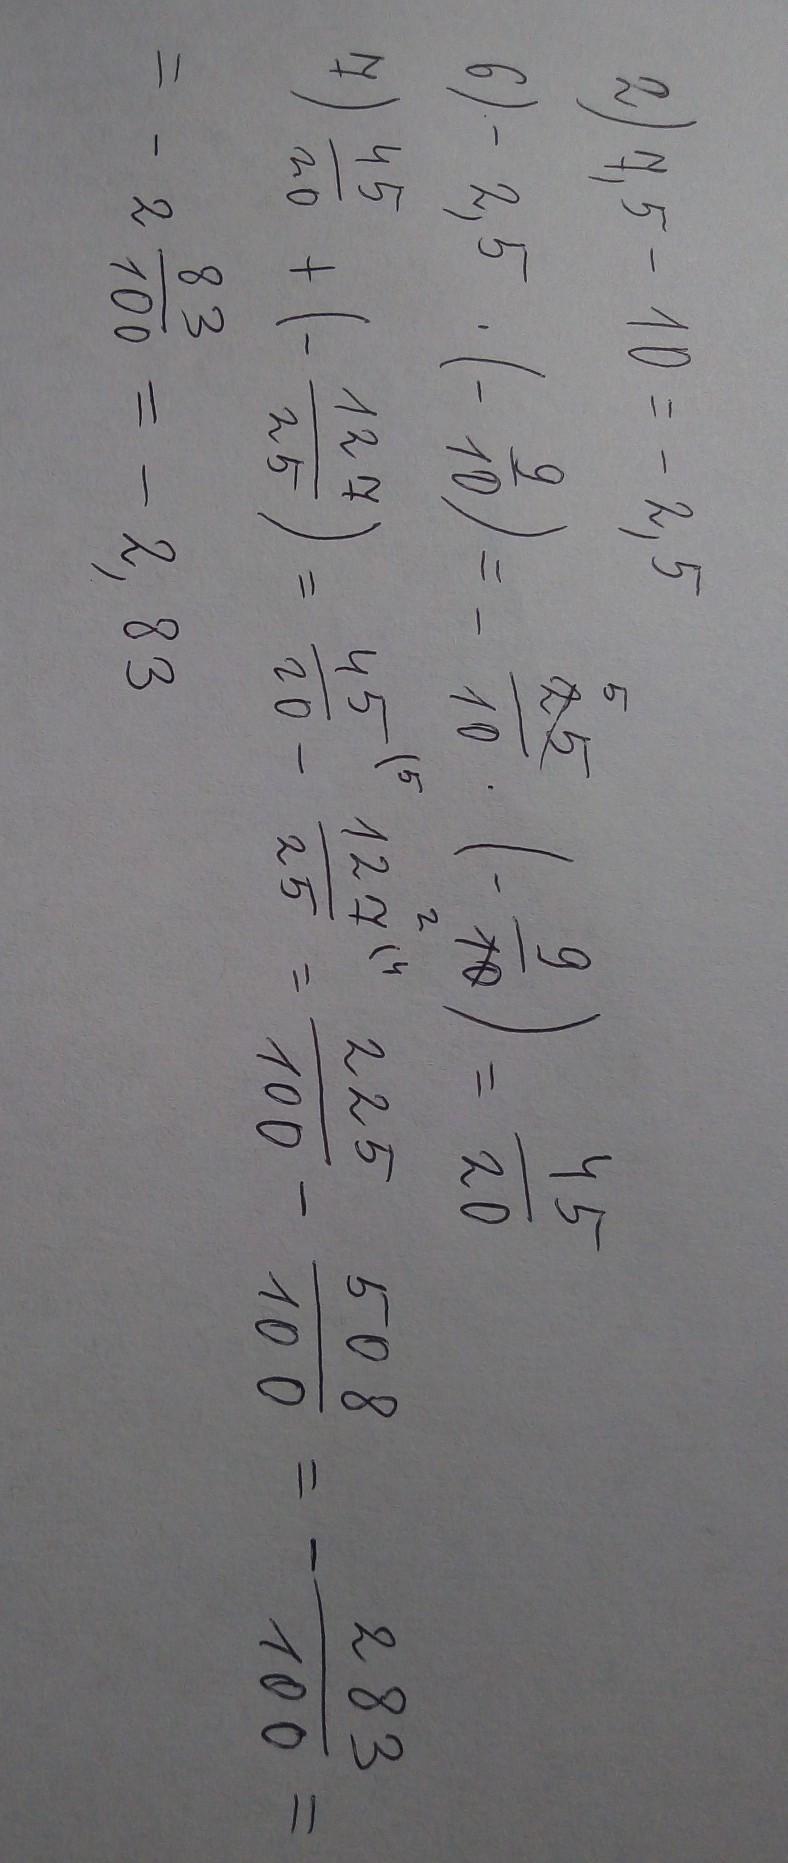 2) 7,5 - 10 = - 2,5
6) - 2,5 · (- 9/10) = - 25/10 · (- 9/10) = 45/20
5 2
7) 45/20 + (- 127/25) = 45/20 (5 - 127/25 (4 = 225/100 - 508/100 = - 283/100 =
= - 2 83/100 = - 2,83